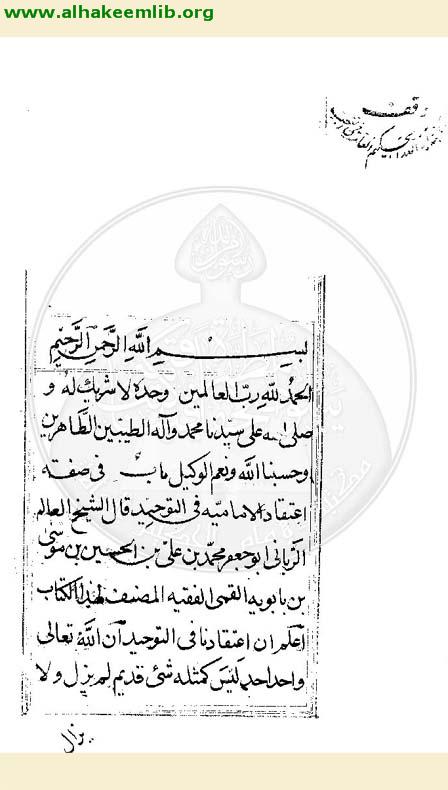 www.alhakeemlib.org
وقف
بسم الله الرحمن الرحيم
الحمد لله رب العالمين وحده لا شريك له و
صلى الله على سيدنا محمد وآله الطيبين الطاهرين
وحسبنا الله ونعم الوكيل باب في صفة
اعتقاد الامامیه فی التوحید قال الشیخ العالم
الربانی ابو جعفر محمد بن علی بن الحسین بن موسی
بن بابویه القمی الفقیه المصنف لهذا الکتاب
اعلم ان اعتقادنا فی التوحید ان الله تعالی
واحد احد لیس کمثله شئ قدیم لم یزل ولا
یزال